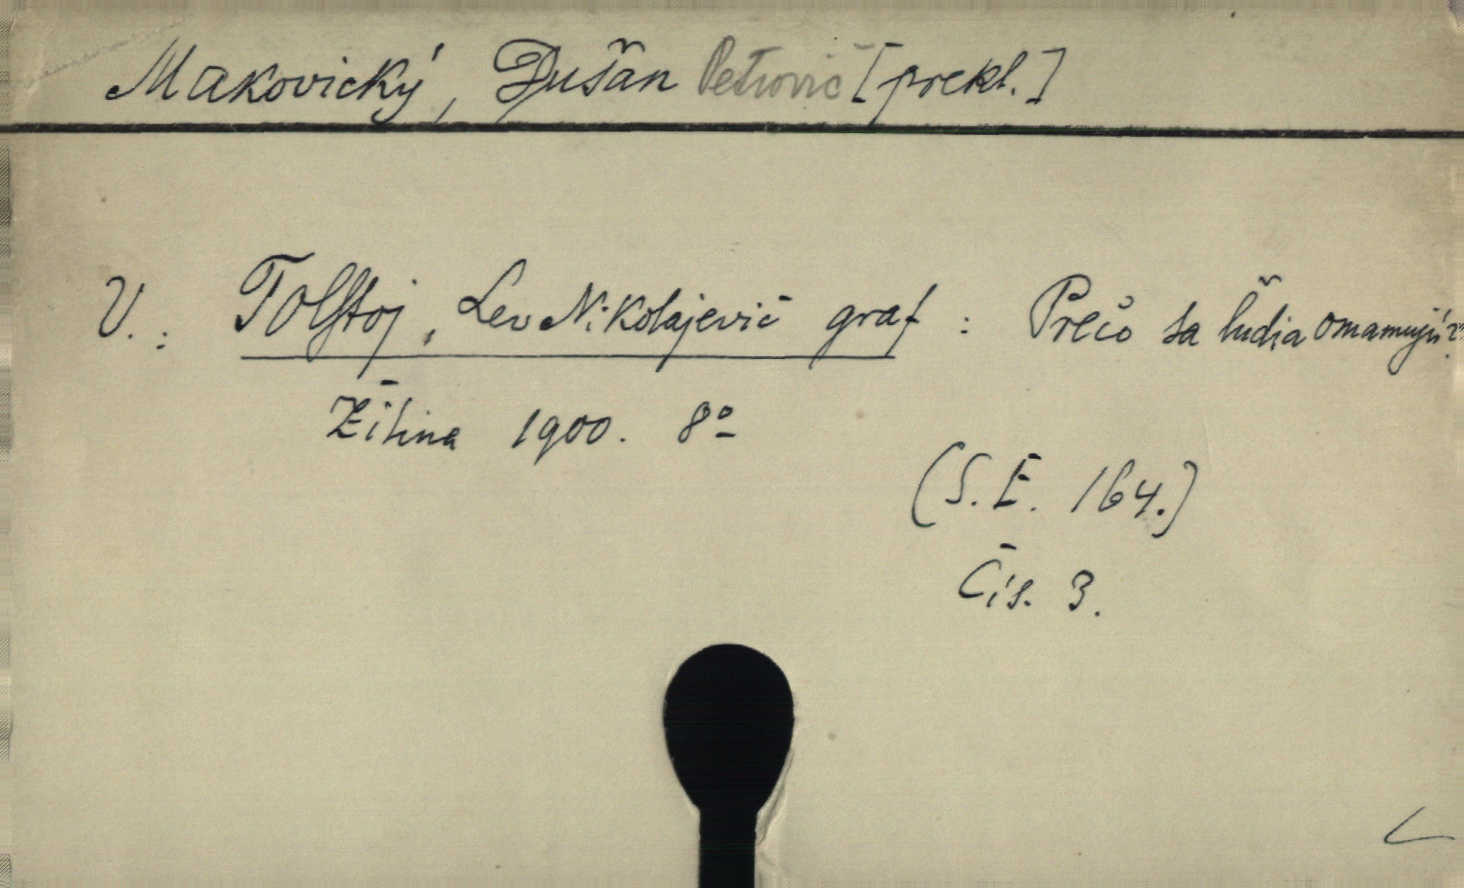 Makovický, Dušan Petrovič [prekl.]
V.: Tolstoj, Lev Nikolajevič graf : Prečo sa ľudia omamujú?
Žilina 1900. 8º
(S. E. 164.)
Čís. 3.